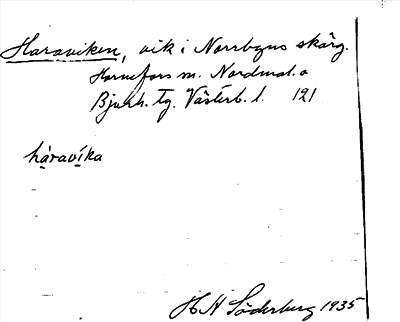 Haraviken, vik i Norrbyns skärg.
Hörnefors m. Nordmal. o
Bjurh. tg. Västerb. l. 121
háravíka
H H Söderberg 1935